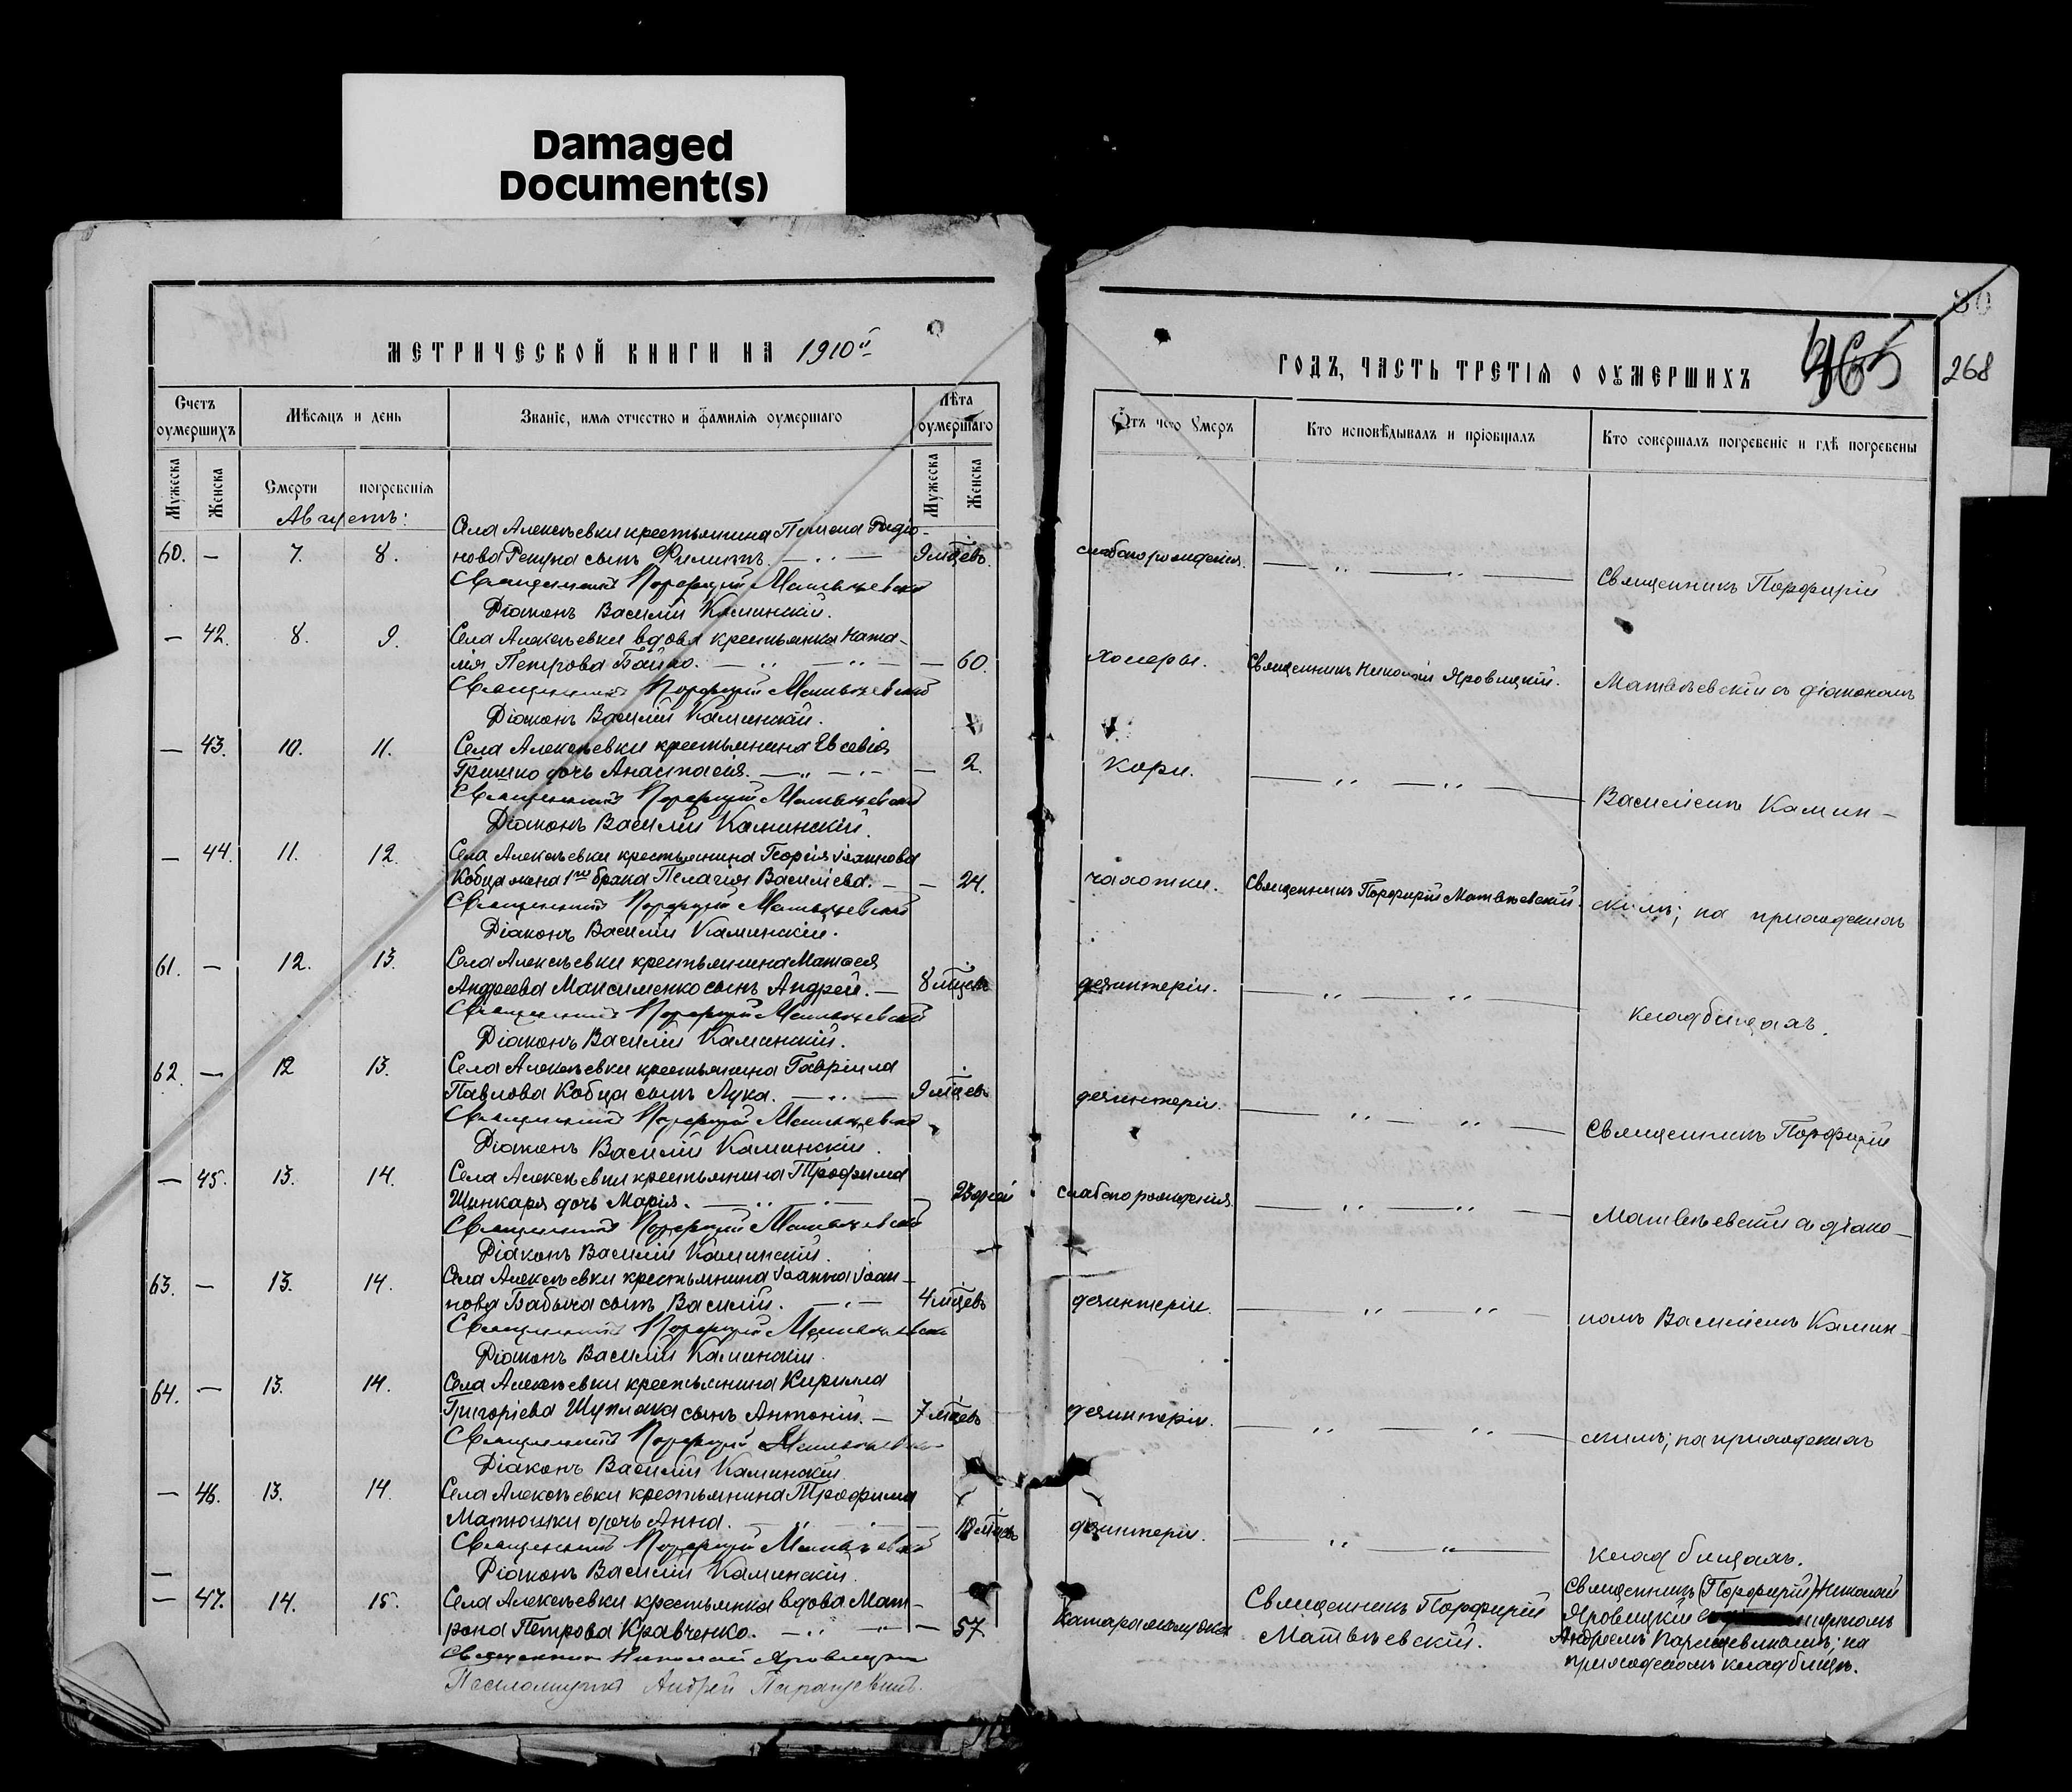 Damaged
Document(s)
МЕТРИЧЕСКОЙ КНИГИ НА 1910й
Счетъ оумершихъ
Мѣсяцъ и день
Званіе, имя отчество и фамилія оумершаго
Лѣта оумершаго
Мужеска
Женска
Смерти
погребенія
Мужеска
Женска
Августъ:
Села Алексѣевки крестьянина Пимена Родіо-
60. — 7. 8. нова Репуна сынъ Филиппъ. 9 мцевъ
Священникъ Порфирій Матвѣевскій
Діаконъ Василій Каминскій.
— 42. 8. 9. Села Алексѣевки вдова крестьянка Ната-
лія Петрова Байко. — 60.
Священникъ Порфирій Матвѣевскій
Діаконъ Василій Каминскій.
— 43. 10. 11. Села Алексѣевки крестьянина Евсевія
Гришко дочь Анастасія. — 2.
Священникъ Порфирій Матвѣевскій
Діаконъ Василій Каминскій.
— 44. 11. 12. Села Алексѣевки крестьянина Георгія Іоаннова
Кобца жена 1го брака Пелагія Василіева. — 24.
Священникъ Порфирій Матвѣевскій
Діаконъ Василій Каминскій.
61. — 12. 13. Села Алексѣевки крестьянина Матѳея
Андреева Максименко сынъ Андрей. — 8 мцевъ
Священникъ Порфирій Матвѣевскій
Діаконъ Василій Каминскій.
62. — 12 13. Села Алексѣевки крестьянина Гавріила
Павлова Кобца сынъ Лука. 9 мцевъ
Священникъ Порфирій Матвѣевскій
Діаконъ Василій Каминскій.
— 45. 13. 14. Села Алексѣевки крестьянина Трофима
Шинкаря дочь Марія. — 23 дней
Священникъ Порфирій Матвѣевскій
Діаконъ Василій Каминскій.
63. — 13. 14. Села Алексѣевки крестьянина Іоанна Іоан-
нова Бабыча сынъ Василій. 4 мцевъ
Священникъ Порфирій Матвѣевскій
Діаконъ Василій Каминскій.
64. — 13. 14. Села Алексѣевки крестьянина Кирилла
Григоріева Шуплака сынъ Антоній. — 7 мцевъ
Священникъ Порфирій Матвѣевскій
Діаконъ Василій Каминскій.
— 46. 13. 14. Села Алексѣевки крестьянина Трофима
Матюшки дочь Анна. — 10 мцевъ
Священникъ Порфирій Матвѣевскій
Діаконъ Василій Каминскій.
— 47. 14. 15. Села Алексѣевки крестьянка вдова Мат-
рона Петрова Кравченко. — 57
Священникъ Николай Яровицкій
Псаломщикъ Андрей
ГОДЪ, ЧАСТЬ ТРЕТІЯ О ОУМЕРШИХЪ
80
465
268
Отъ чего Умеръ
Кто исповѣдывалъ и пріобщалъ
Кто совершалъ погребеніе и гдѣ погребены
слабаго рожденія.
Священникъ Порфирій
Холеры. Священникъ Николай Яровицкій.
Матвѣевскій съ діакономъ
Кори.
Василіемъ Камин-
чахотки. Священникъ Порфирій Матвѣевскій.
скимъ; на приходскихъ
дезинтеріи.
кладбищахъ.
дезинтеріи.
Священникъ Порфирій
слабаго рожденія.
Матвѣевскій съ діако-
дезинтеріи.
номъ Василіемъ Камин-
дезинтеріи.
скимъ; на приходскихъ
дезинтеріи.
кладбищахъ.
Катара желудка
Священникъ Порфирій
Матвѣевскій.
Священникъ (Порфирій) Николай
Яровицкій съ
Андреемъ на
приходскомъ кладбищѣ.